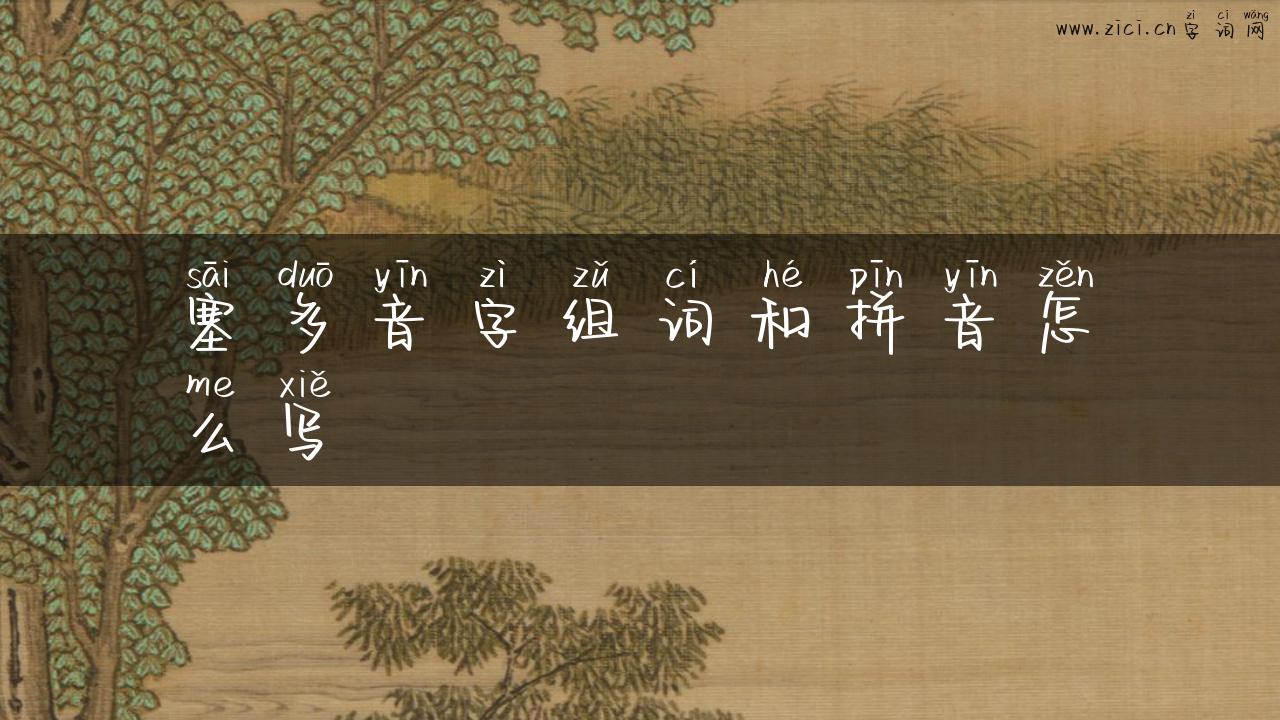 zì cí wǎng
www.zici.cn字词网
sāi duō yīn zì zǔ cí hé pīn yīn zěn
塞多音字组词和拼音怎
me xiě
么写